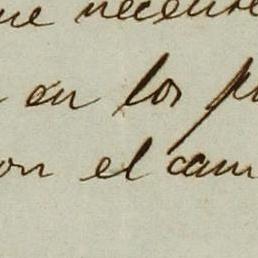 ue necesite
en los p
on el cam